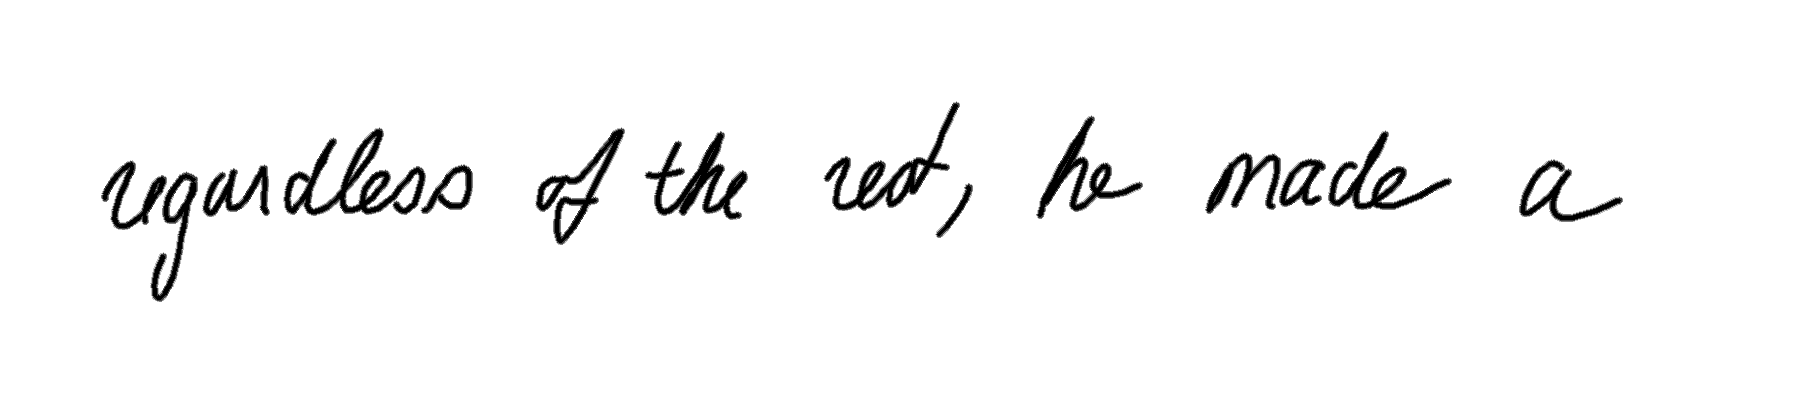 regardless of the rest, he made a